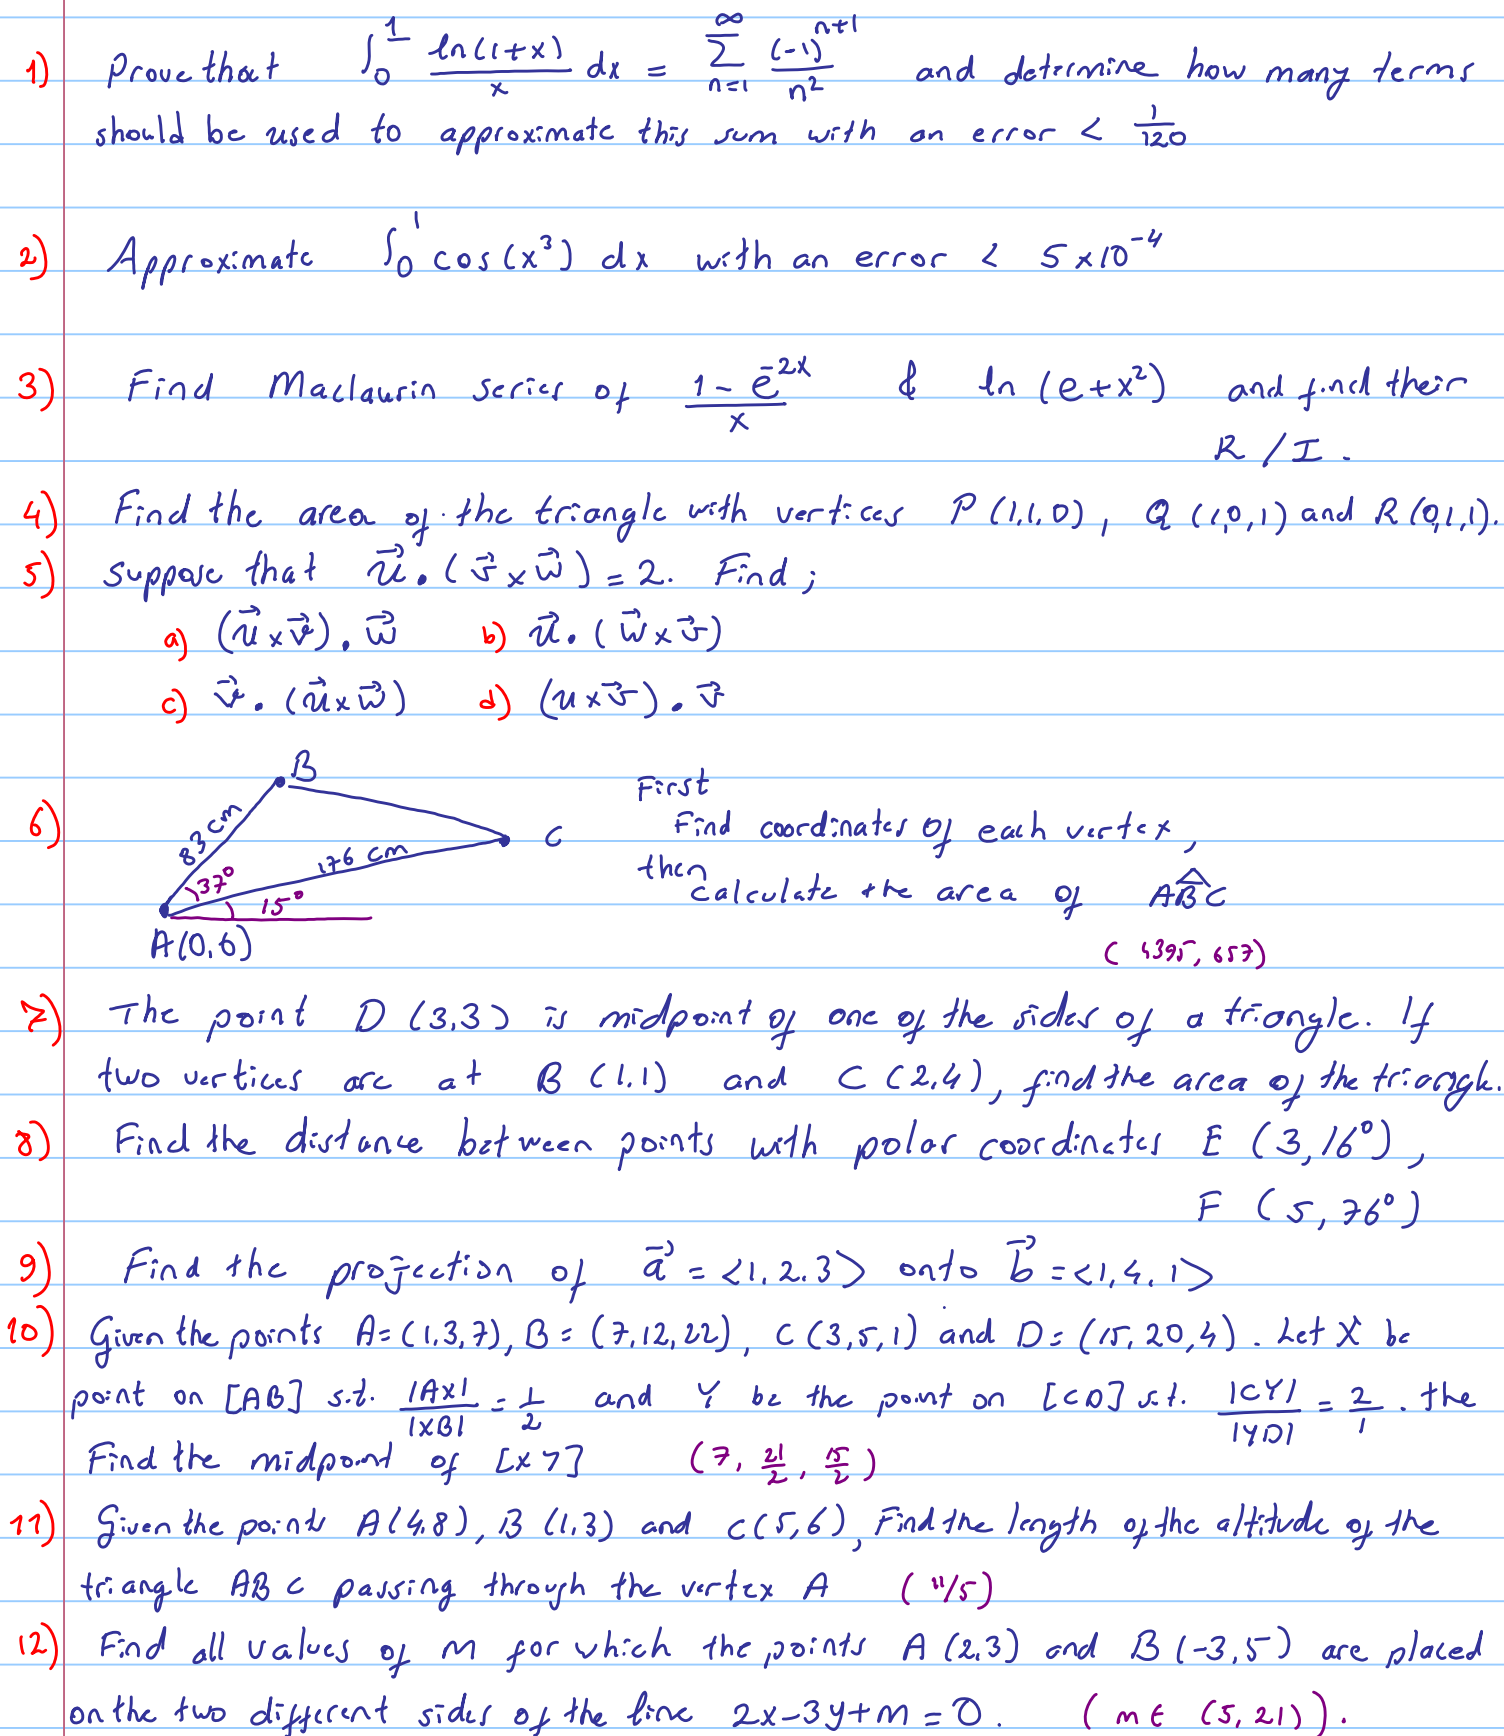 1) Prove that ∫₀¹ ln(1+x)/x dx = ∑_{n=1}^{∞} (-1)^{n+1}/n² and determine how many terms
should be used to approximate this sum with an error < 1/120
2) Approximate ∫₀¹ cos(x³) dx with an error < 5×10⁻⁴
3) Find Maclaurin series of (1-e^{-2x})/x & ln(e+x²) and find their
R/I.
4) Find the area of the triangle with vertices P(1,1,0), Q(1,0,1) and R(0,1,1).
5) Suppose that u⃗.(v⃗×w⃗)=2. Find;
a) (u⃗×v⃗).w⃗ b) u⃗.(w⃗×v⃗)
c) v⃗.(u⃗×w⃗) d) (u×v⃗).v⃗
6) B
83 cm
37°
176 cm
15°
C
A(0,6)
First
Find coordinates of each vertex,
then
calculate the area of ABC
(4395,657)
7) The point D(3,3) is midpoint of one of the sides of a triangle. If
two vertices are at B(1,1) and C(2,4), find the area of the triangle.
8) Find the distance between points with polar coordinates E(3,16°),
F(5,76°)
9) Find the projection of a⃗=<1,2,3> onto b⃗=<1,4,1>
10) Given the points A=(1,3,7), B=(7,12,22), C(3,5,1) and D=(15,20,4). Let X be
point on [AB] s.t. |AX|/|XB| = 1/2 and Y be the point on [CD] s.t. |CY|/|YD| = 2/1. the
Find the midpoint of [XY] (7, 21/2, 15/2)
11) Given the points A(4,8), B(1,3) and C(5,6), Find the length of the altitude of the
triangle ABC passing through the vertex A (11/5)
12) Find all values of m for which the points A(2,3) and B(-3,5) are placed
on the two different sides of the line 2x-3y+m=0. (m∈(5,21)).